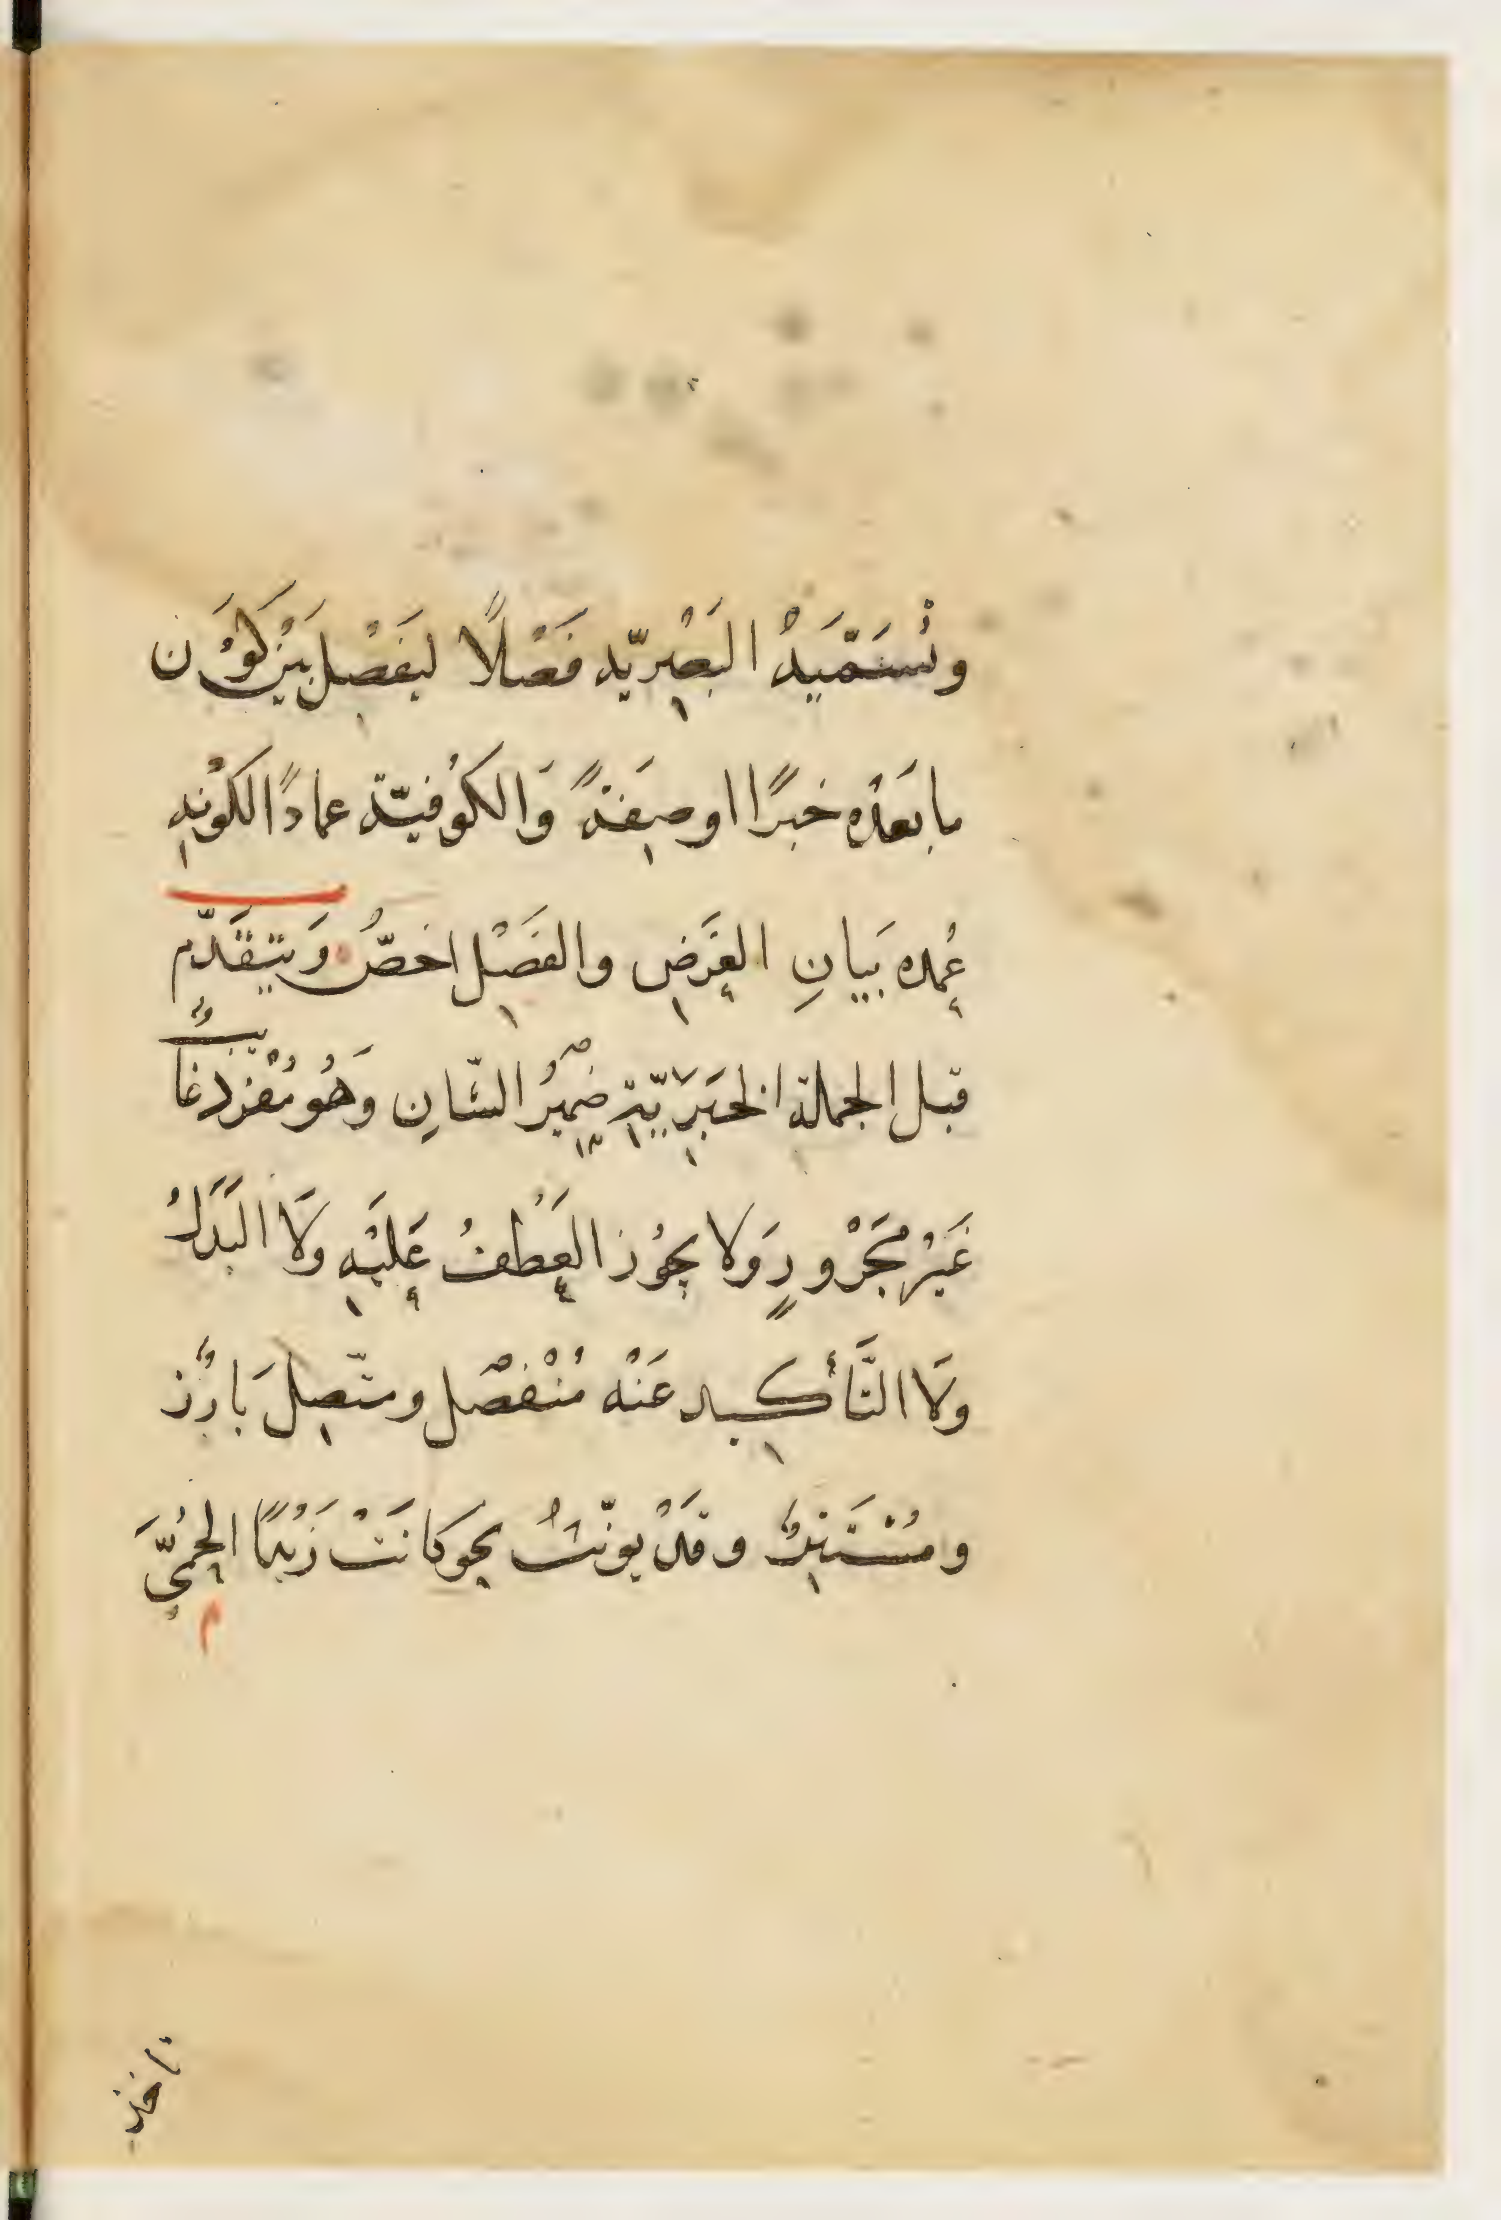 وتُسَمّيَهُ البَصْرِيّه فَصْلًا ليَفَصْل بَيْن كَوَن
ما بَعدُه خبرًا او صِفَةً وَالكوُفيّة عمادًا لكوُنِهِ
عُمده بَيانِ الغَرَضِ والفَصْل اخصُّ وَيتقَدّم
قبل الجملة الخبَرَيّةِ ضميُر الشّانِ وَهُو مُفرَد غاَلباً
غَيْر مَجَرْورٍ وَلا يجوُز العَطْفُ عَليْهِ وَلَا البَدَلُ
وَلَا التَّأكيد عَنْه مُنْفَصْل ومتّصِل بَارُز
ومُسْتَتِرٌ وقَدْ يؤنّثُ نحو كانَتْ زَيْدًا الحُمّىَ
تاخذ